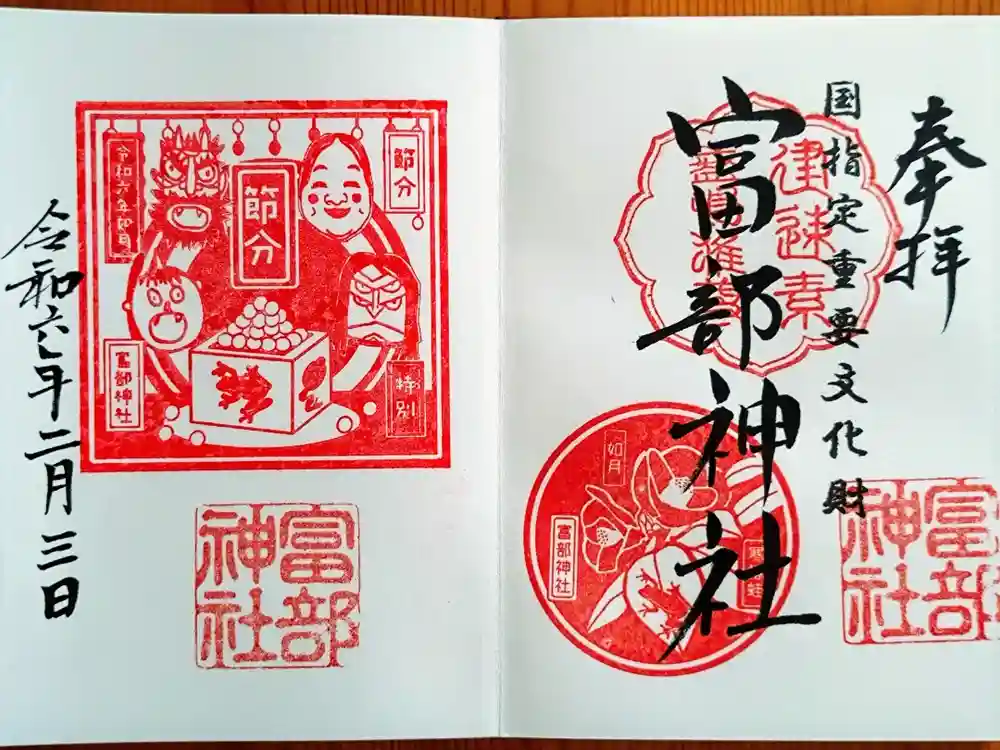 奉拝
国指定重要文化財
富部神社
建速素
如月
富部神社
富部
神社
令和六年如月
節分
節分
富部神社
特別
富部
神社
令和六年二月三日